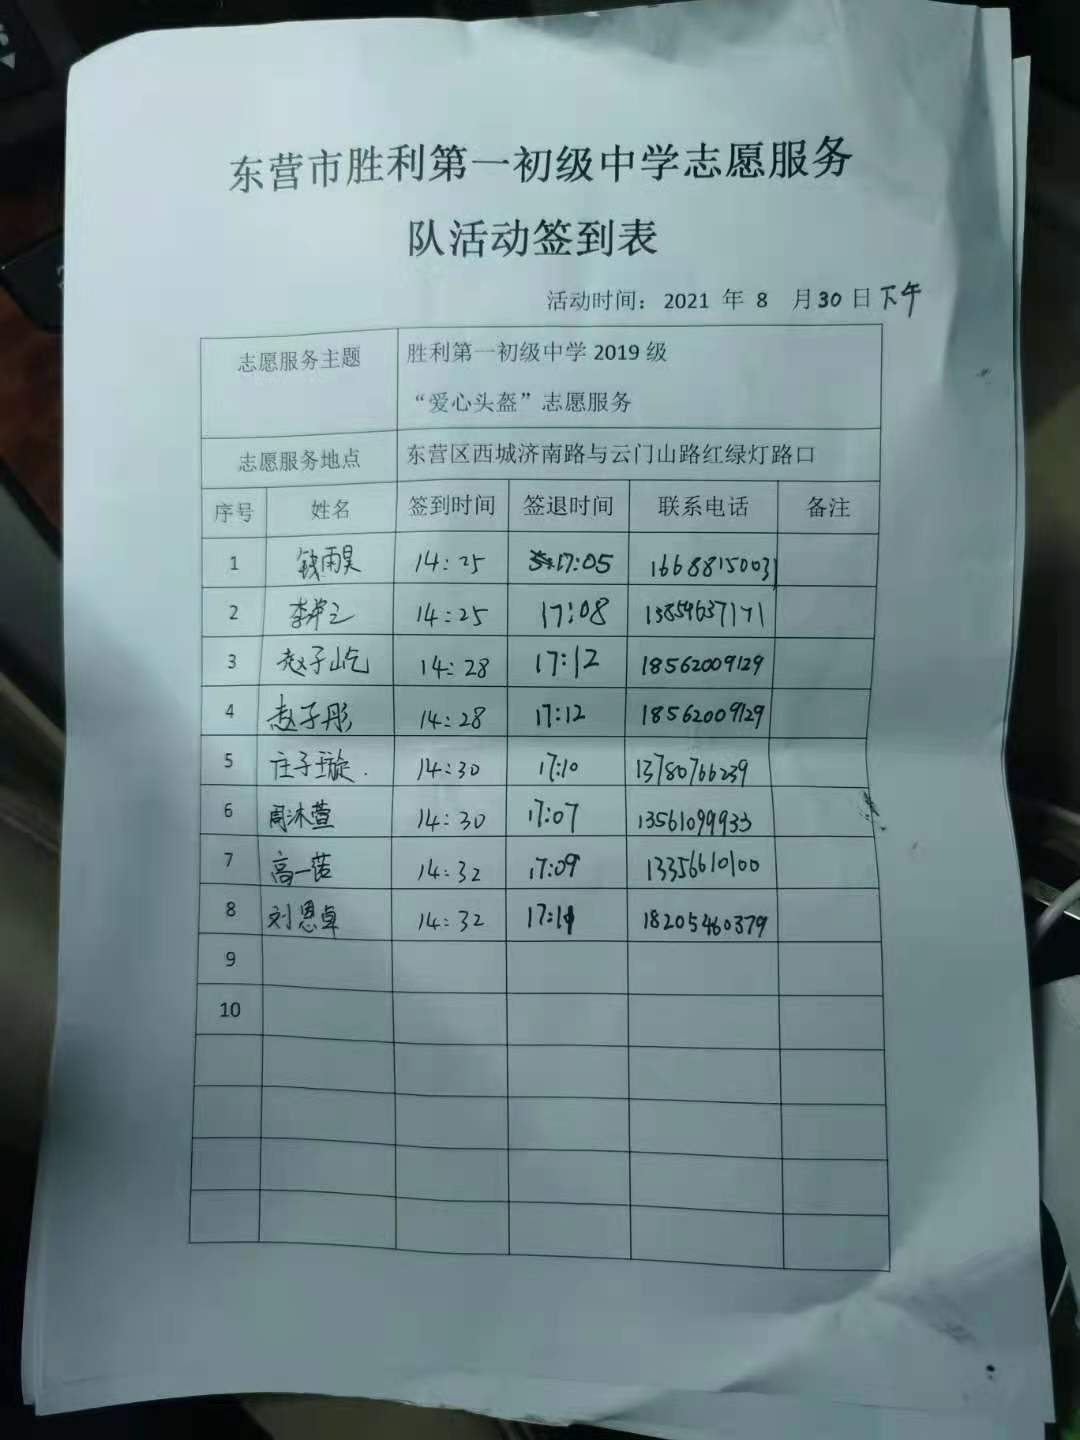 东营市胜利第一初级中学志愿服务
队活动签到表
活动时间：2021 年 8 月30 日下午
志愿服务主题 胜利第一初级中学 2019 级
“爱心头盔”志愿服务
志愿服务地点 东营区西城济南路与云门山路红绿灯路口
序号 姓名 签到时间 签退时间 联系电话 备注
1 钱雨昊 14:25 17:05 16688150031
2 14:25 17:08 13854637171
3 赵子屹 14:28 17:12 18562009129
4 赵子彤 14:28 17:12 18562009129
5 庄子璇. 14:30 17:10 13780766239
6 周沐萱 14:30 17:07 13561099933
7 高一诺 14:32 17:09 13356610100
8 刘恩卓 14:32 17:11 18205460379
9
10